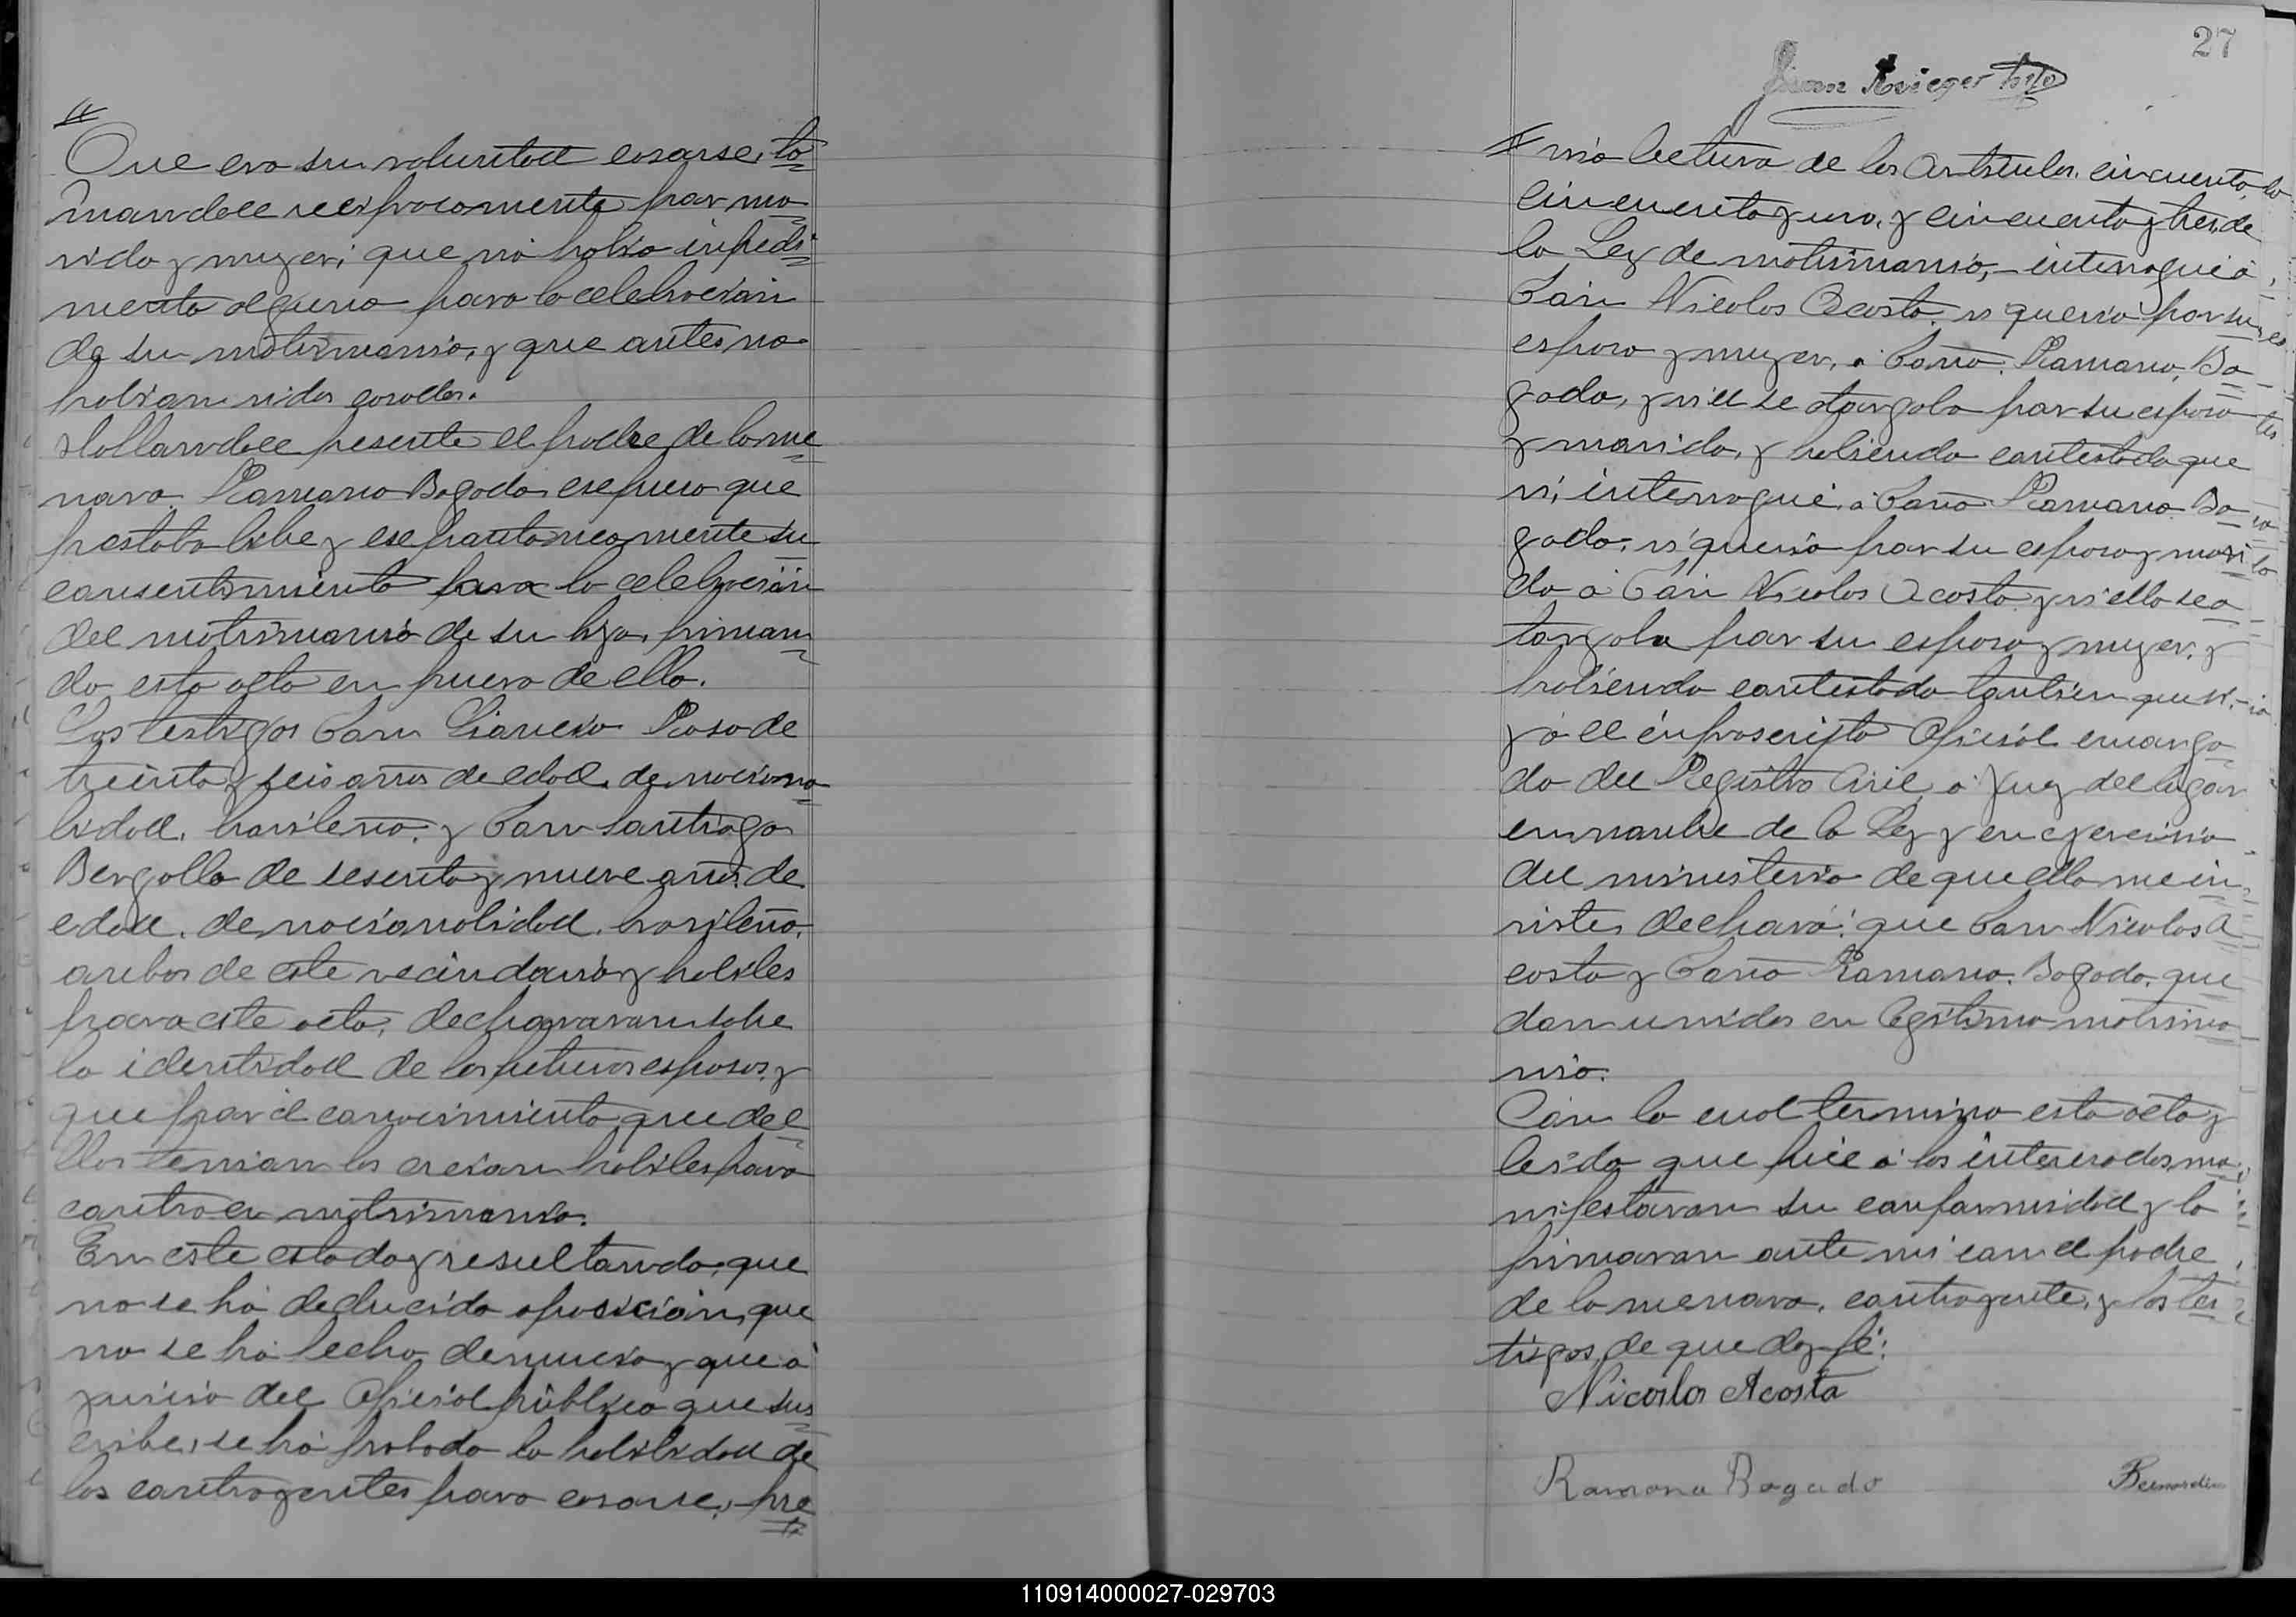 Que era su voluntad casarse, to
mandose reciprocamente por ma
rido y muger; que no habia impedi
mento alguno para la celebracion
de su matrimonio, y que antes no
habian sidos casados.
Hallandose presente el padre de la me
nora Ramona Bogado, expuso que
prestaba libre y espontaneamente su
consentimiento para la celebracion
del matrimonio de su hija, firman
do esta acta en prueva de ello.
Los testigos Don Roso de
treinta y seis años de edad, de naciona
lidad, brasilero, y Don Santiago
de sesenta y nueve años de
edad, de nacionalidad, brasilero,
ambos de este vecindario y habiles
para este acto, declararan sobre
la identidad de los futuros esposos, y
que por el conocimiento que de e
llos tenian los creian habiles para
contraer matrimonio.
En este estado y resultando, que
no se há deducido oposicion, que
no se há hecho denuncia y que á
juicio del Oficial público que sus
cribe, se há probado la habilidad de
los contrayentes para casarse, pre
27
Krieger hijo
via lectura de los Articulos, cincuenta,
cincuenta y uno, y cincuenta y tres, de
la Ley de matrimonio, interrogué á
Don Nicolas Acosta, si queria por su
esposa y muger, á Doña Ramona, Bo
gado, y si el se otorgaba por su esposo
y marido, y habiendo contestado que
si, interrogué, á Doña Ramona Bo
gado, si queria por su esposo y mari
do á Don Nicolas Acosta y si ella se o
torgaba por su esposa y muger, y
habiendo contestado tambien que si,
yó el infrascripto Oficial encarga
do del Registro Civil, ó Juez del lugar
en nombre de la Ley y en ejercicio
del ministerio de que ella me in
viste, declaro: que Don Nicolas A
costa y Doña Ramona Bogado, que
dan unidos en legitimo matrimo
nio.
Con lo cual termino esta acta y
leida que fué á los interesados, ma
nifestaron su conformidad y la
firmaron ante mi con el padre
de la menora, contrayente, y los tes
tigos, de que doy fé:
Nicolas Acosta
Ramona Bogado
110914000027-029703